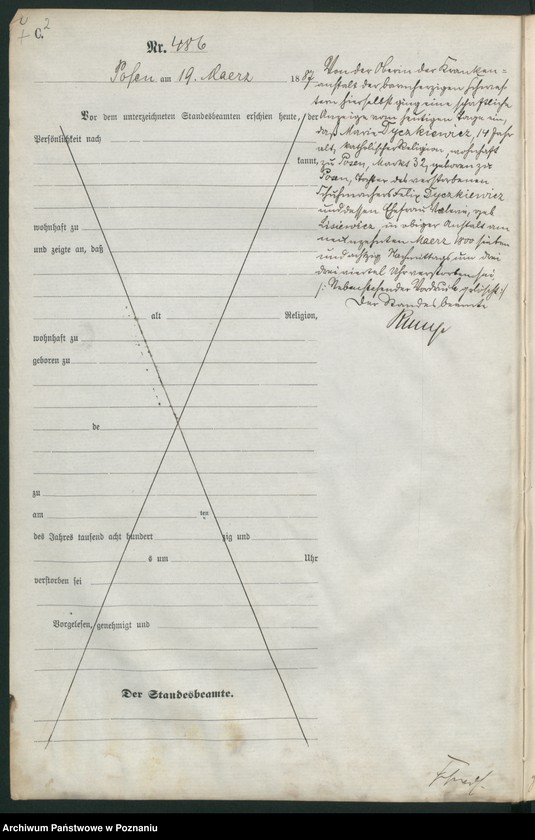 C. 2
Nr. 486
Posen am 19. Maerz 1887
Vor dem unterzeichneten Standesbeamten erschien heute, der
Persönlichkeit nach
kannt,
wohnhaft zu
und zeigte an, daß
alt Religion,
wohnhaft zu
geboren zu
de
zu
am ten
des Jahres tausend acht hundert zig und
s um Uhr
verstorben sei
Vorgelesen, genehmigt und
Der Standesbeamte.
Von der Oberin der Kranken=
anstalt der barmherzigen Schwes
tern hierselbst ging eine schriftliche
Anzeige vom heutigen Tage ein,
daß Marie Dyczkiewicz, 14 Jahr
alt, katholischer Religion, wohnhaft
zu Posen, Markt 32, geboren zu
Posen, Tochter des verstorbenen
Schuhmachers Felix Dyczkiewicz
und dessen Ehefrau geb
Lisiewicz, in obiger Anstalt am
neunzehnten Maerz 1800 sieben
und achtzig Nachmittags um drei
drei viertel Uhr verstorben sei
/: Nebenstehender Vordruck gelöscht :/
Der Standesbeamte
Archiwum Państwowe w Poznaniu